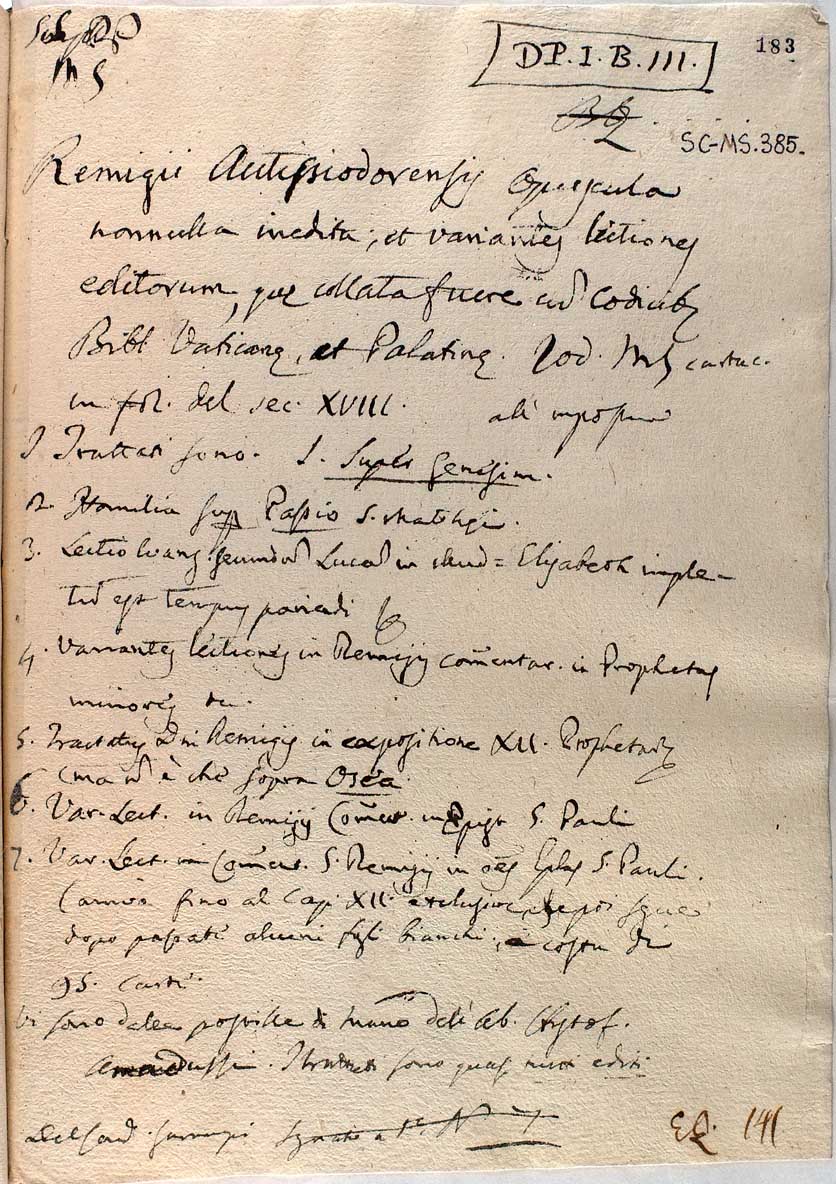 183
DP. I. B. III.
MS
SC-MS. 385.
Remigii Autissiodorensis Opuscula
nonnulla inedita, et variantes lectiones
editorum, quæ collata fuere cũ Codicibꝫ
Bibl Vaticanę, et Palatinę. Cod. MS cartac.
in fol. del sec. XVIII.
I Trattati sono. 1. Super Genesim.
2. Homilia sup Passio S. Matthęi.
3. Lectio Evang. secundũ Lucã in = Elisabeth imple-
tũ est tempus pariendi
4. Variantes lectiones in Remigij com̃entar. in Prophetas
minores
5. Tractatus Dñi Remigij in expositione XII. Prophetarũ
(ma nõ è che sopra Osea
6. Var. Lect. in Remigij Com̃ent. in Epist S. Pauli
7. Var. Lect. in Com̃ent. S. Remigij in oẽs Eplas S. Pauli.
(arriva fino al Cap. XII. exclusive, e poi segue
dopo passati alcuni fogli bianchi, e costa di
95. carte.
Vi sono delle postille di mano dell' Ab. Cristof.
Amadussi. I trattati sono quasi tutti editi
Del Card. Garampi
Eq. 141